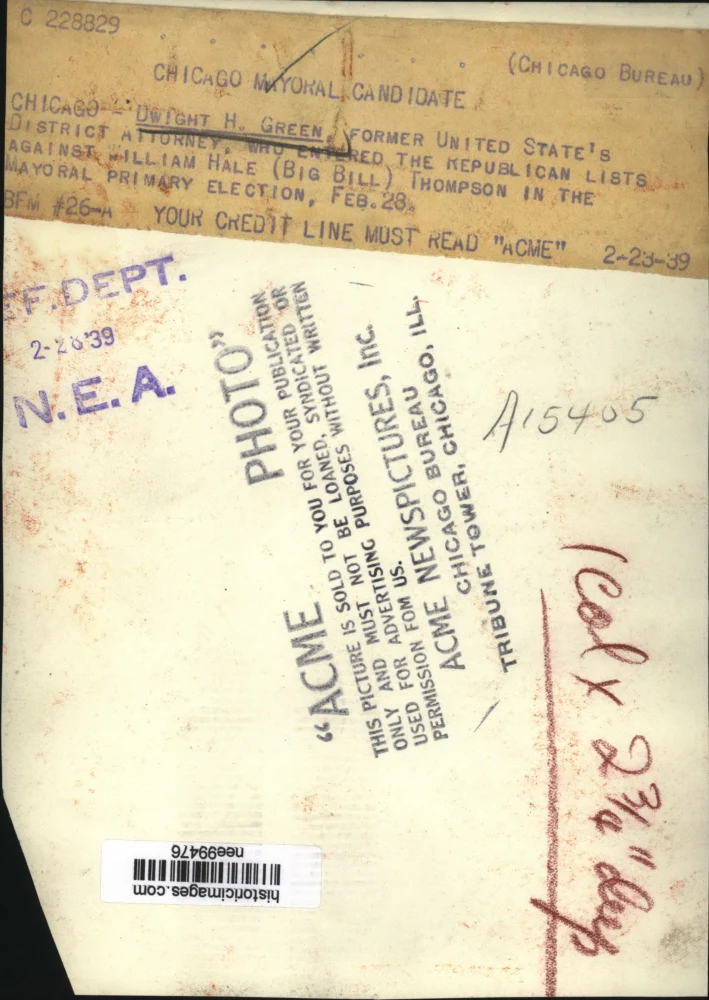 C 228829
(CHICAGO BUREAU)
CHICAGO MAYORAL CANDIDATE
CHICAGO -- DWIGHT H. GREEN, FORMER UNITED STATE'S
DISTRICT ATTORNEY, WHO ENTERED THE REPUBLICAN LISTS
AGAINST WILLIAM HALE (BIG BILL) THOMPSON IN THE
MAYORAL PRIMARY ELECTION, FEB.28.
BFM #26-A YOUR CREDIT LINE MUST READ "ACME" 2-23-39
EF. DEPT.
2-28'39
N.E.A.
"ACME PHOTO"
THIS PICTURE IS SOLD TO YOU FOR YOUR PUBLICATION
ONLY AND MUST NOT BE LOANED, SYNDICATED OR
USED FOR ADVERTISING PURPOSES WITHOUT WRITTEN
PERMISSION FOM US.
ACME NEWSPICTURES, Inc.
CHICAGO BUREAU
TRIBUNE TOWER, CHICAGO, ILL.
A15405
1 Col x 2 3/4" deep
historicimages.com
nee99476